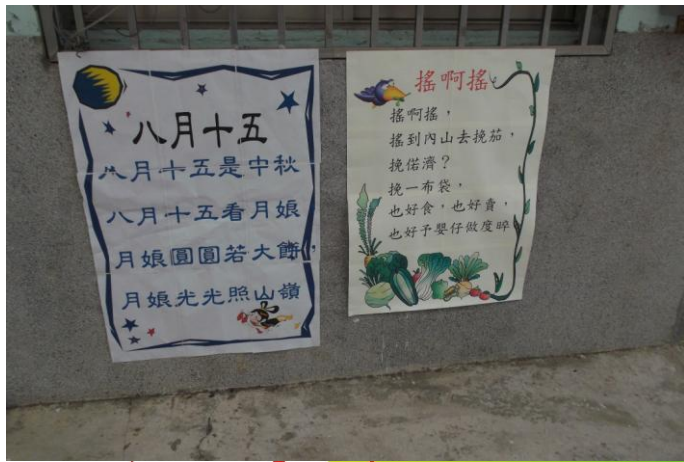 八月十五
八月十五是中秋
八月十五看月娘
月娘圓圓若大餅，
月娘光光照山嶺
搖啊搖
搖啊搖，
搖到內山去挽茄，
挽偌濟？
挽一布袋，
也好食，也好賣，
也好予嬰仔做度晬